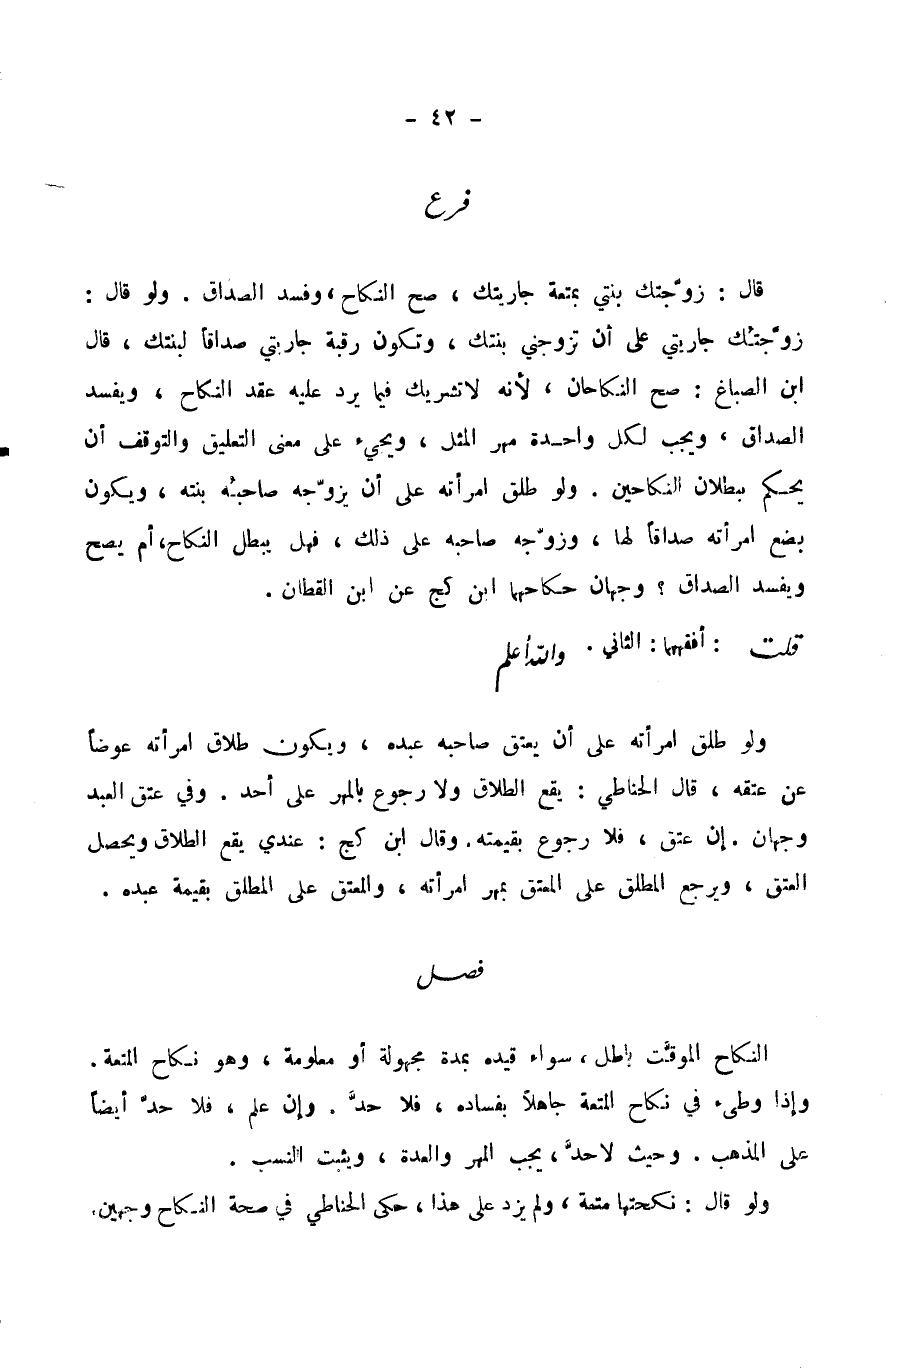 - ٤٢ -
فرع
قال : زوّجتك بنتي بمتعة جاريتك ، صح النكاح ، وفسد الصداق . ولو قال :
زوّجتُك جاريتي على أن تزوجني بنتك ، وتكون رقبة جاريتي صداقاً لبنتك ، قال
ابن الصباغ : صح النكاحان ، لأنه لاتشريك فيما يرد عليه عقد النكاح ، ويفسد
الصداق ، ويجب لكل واحدة مهر المثل ، ويجيء على معنى التعليق والتوقف أن
يحكم ببطلان النكاحين . ولو طلق امرأته على أن يزوّجه صاحبُه بنته ، ويكون
بضع امرأته صداقاً لها ، وزوّجه صاحبه على ذلك ، فهل يبطل النكاح ، أم يصح
ويفسد الصداق ؟ وجهان حكاهما ابن كج عن ابن القطان .
قلت : أفقههما : الثاني . والله أعلم
ولو طلق امرأته على أن يعتق صاحبه عبده ، ويكون طلاق امرأته عوضاً
عن عتقه ، قال الحناطي : يقع الطلاق ولا رجوع بالمهر على أحد . وفي عتق العبد
وجهان . إن عتق ، فلا رجوع بقيمته . وقال ابن كج : عندي يقع الطلاق ويحصل
العتق ، ويرجع المطلق على المعتق بمهر امرأته ، والمعتق على المطلق بقيمة عبده .
فصل
النكاح الموقَّت باطل ، سواء قيده بمدة مجهولة أو معلومة ، وهو نكاح المتعة .
وإذا وطىء في نكاح المتعة جاهلاً بفساده ، فلا حدَّ . وإن علم ، فلا حدّ أيضاً
على المذهب . وحيث لاحدَّ ، يجب المهر والعدة ، ويثبت النسب .
ولو قال : نكحتها متعة ، ولم يزد على هذا ، حكى الحناطي في صحة النكاح وجهين .